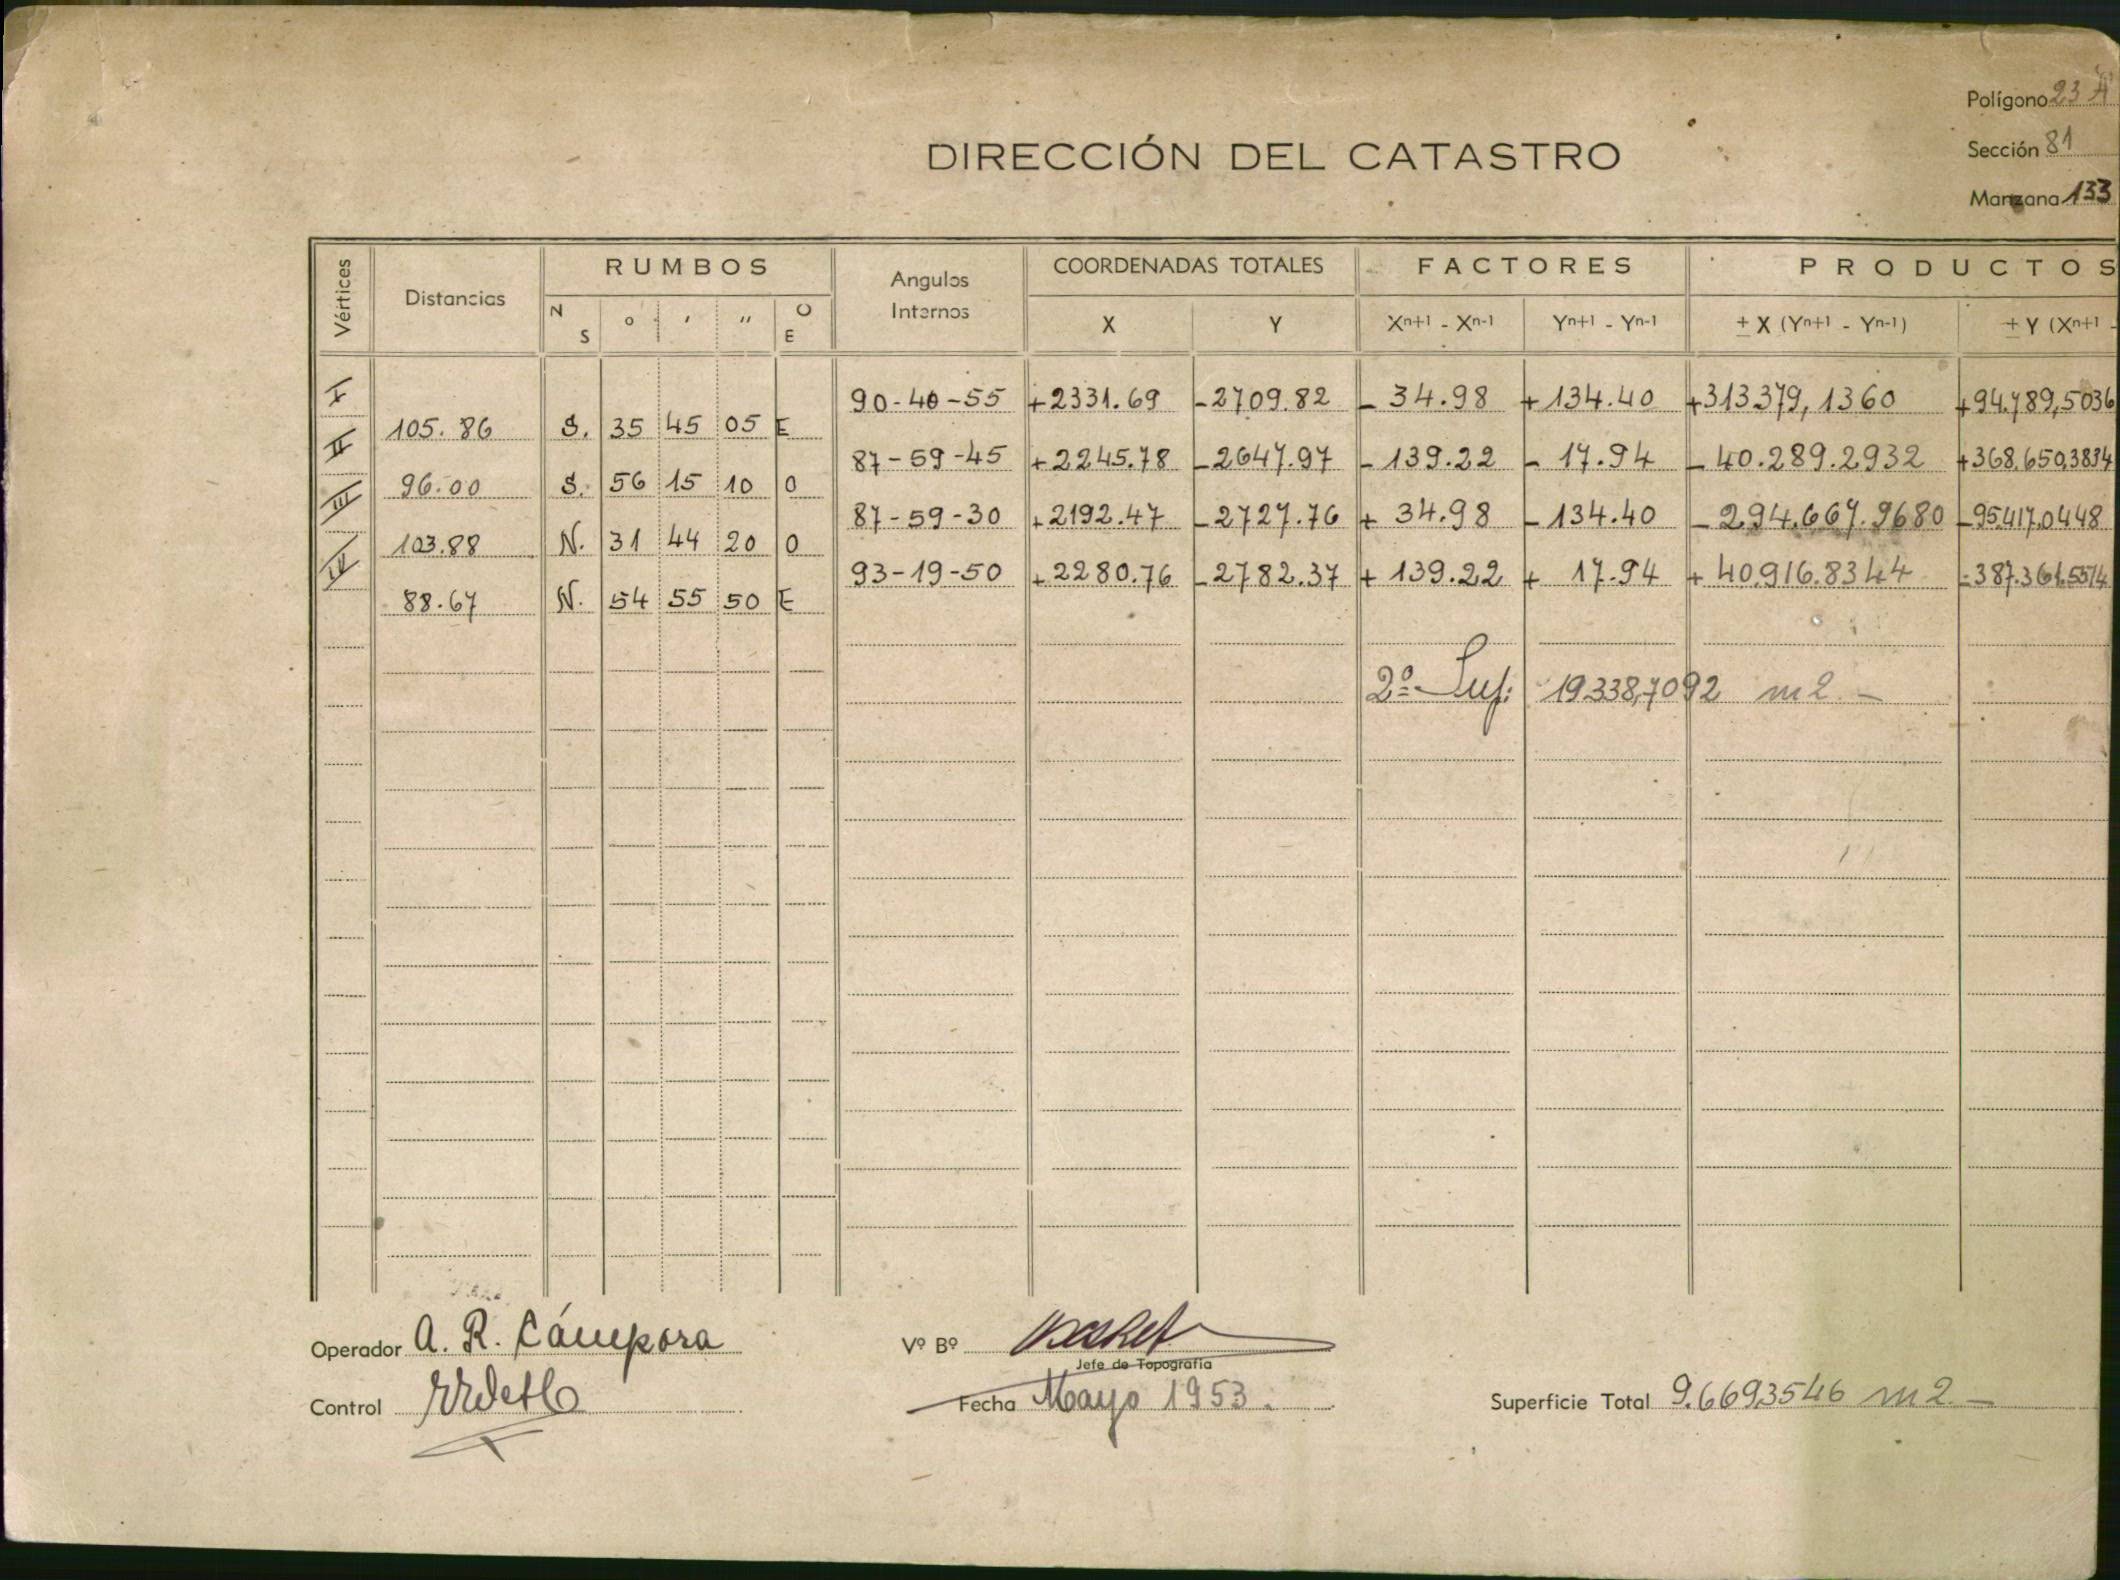 Polígono 23 A
DIRECCIÓN DEL CATASTRO
Sección 81
Manzana 133
Vértices Distancias RUMBOS Angulos Internos COORDENADAS TOTALES FACTORES PRODUCTOS
N S o ' '' O E X Y Xn+1 - Xn-1 Yn+1 - Yn-1 ± X (Yn+1 - Yn-1) ± Y (Xn+1 -
I 90-40-55 +2331.69 -2709.82 - 34.98 + 134.40 +313379,1360 +94.789,5036
105.86 S. 35 45 05 E
II 87-59-45 +2245.78 -2647.97 - 139.22 - 17.94 - 40.289.2932 +368.650,3834
96.00 S. 56 15 10 O
III 87-59-30 +2192.47 -2727.76 + 34.98 - 134.40 - 294.667.9680 -95417.0448
103.88 N. 31 44 20 O
IV 93-19-50 +2280.76 -2782.37 + 139.22 + 17.94 + 40.916.8344 -387.361.5514
88.67 N. 54 55 50 E
2º Sup: 19.338,7092 m2.-
Operador A. R. Cámpora Vº Bº
Jefe de Topografía
Control Fecha Mayo 1953. Superficie Total 9.669.3546 m2.-